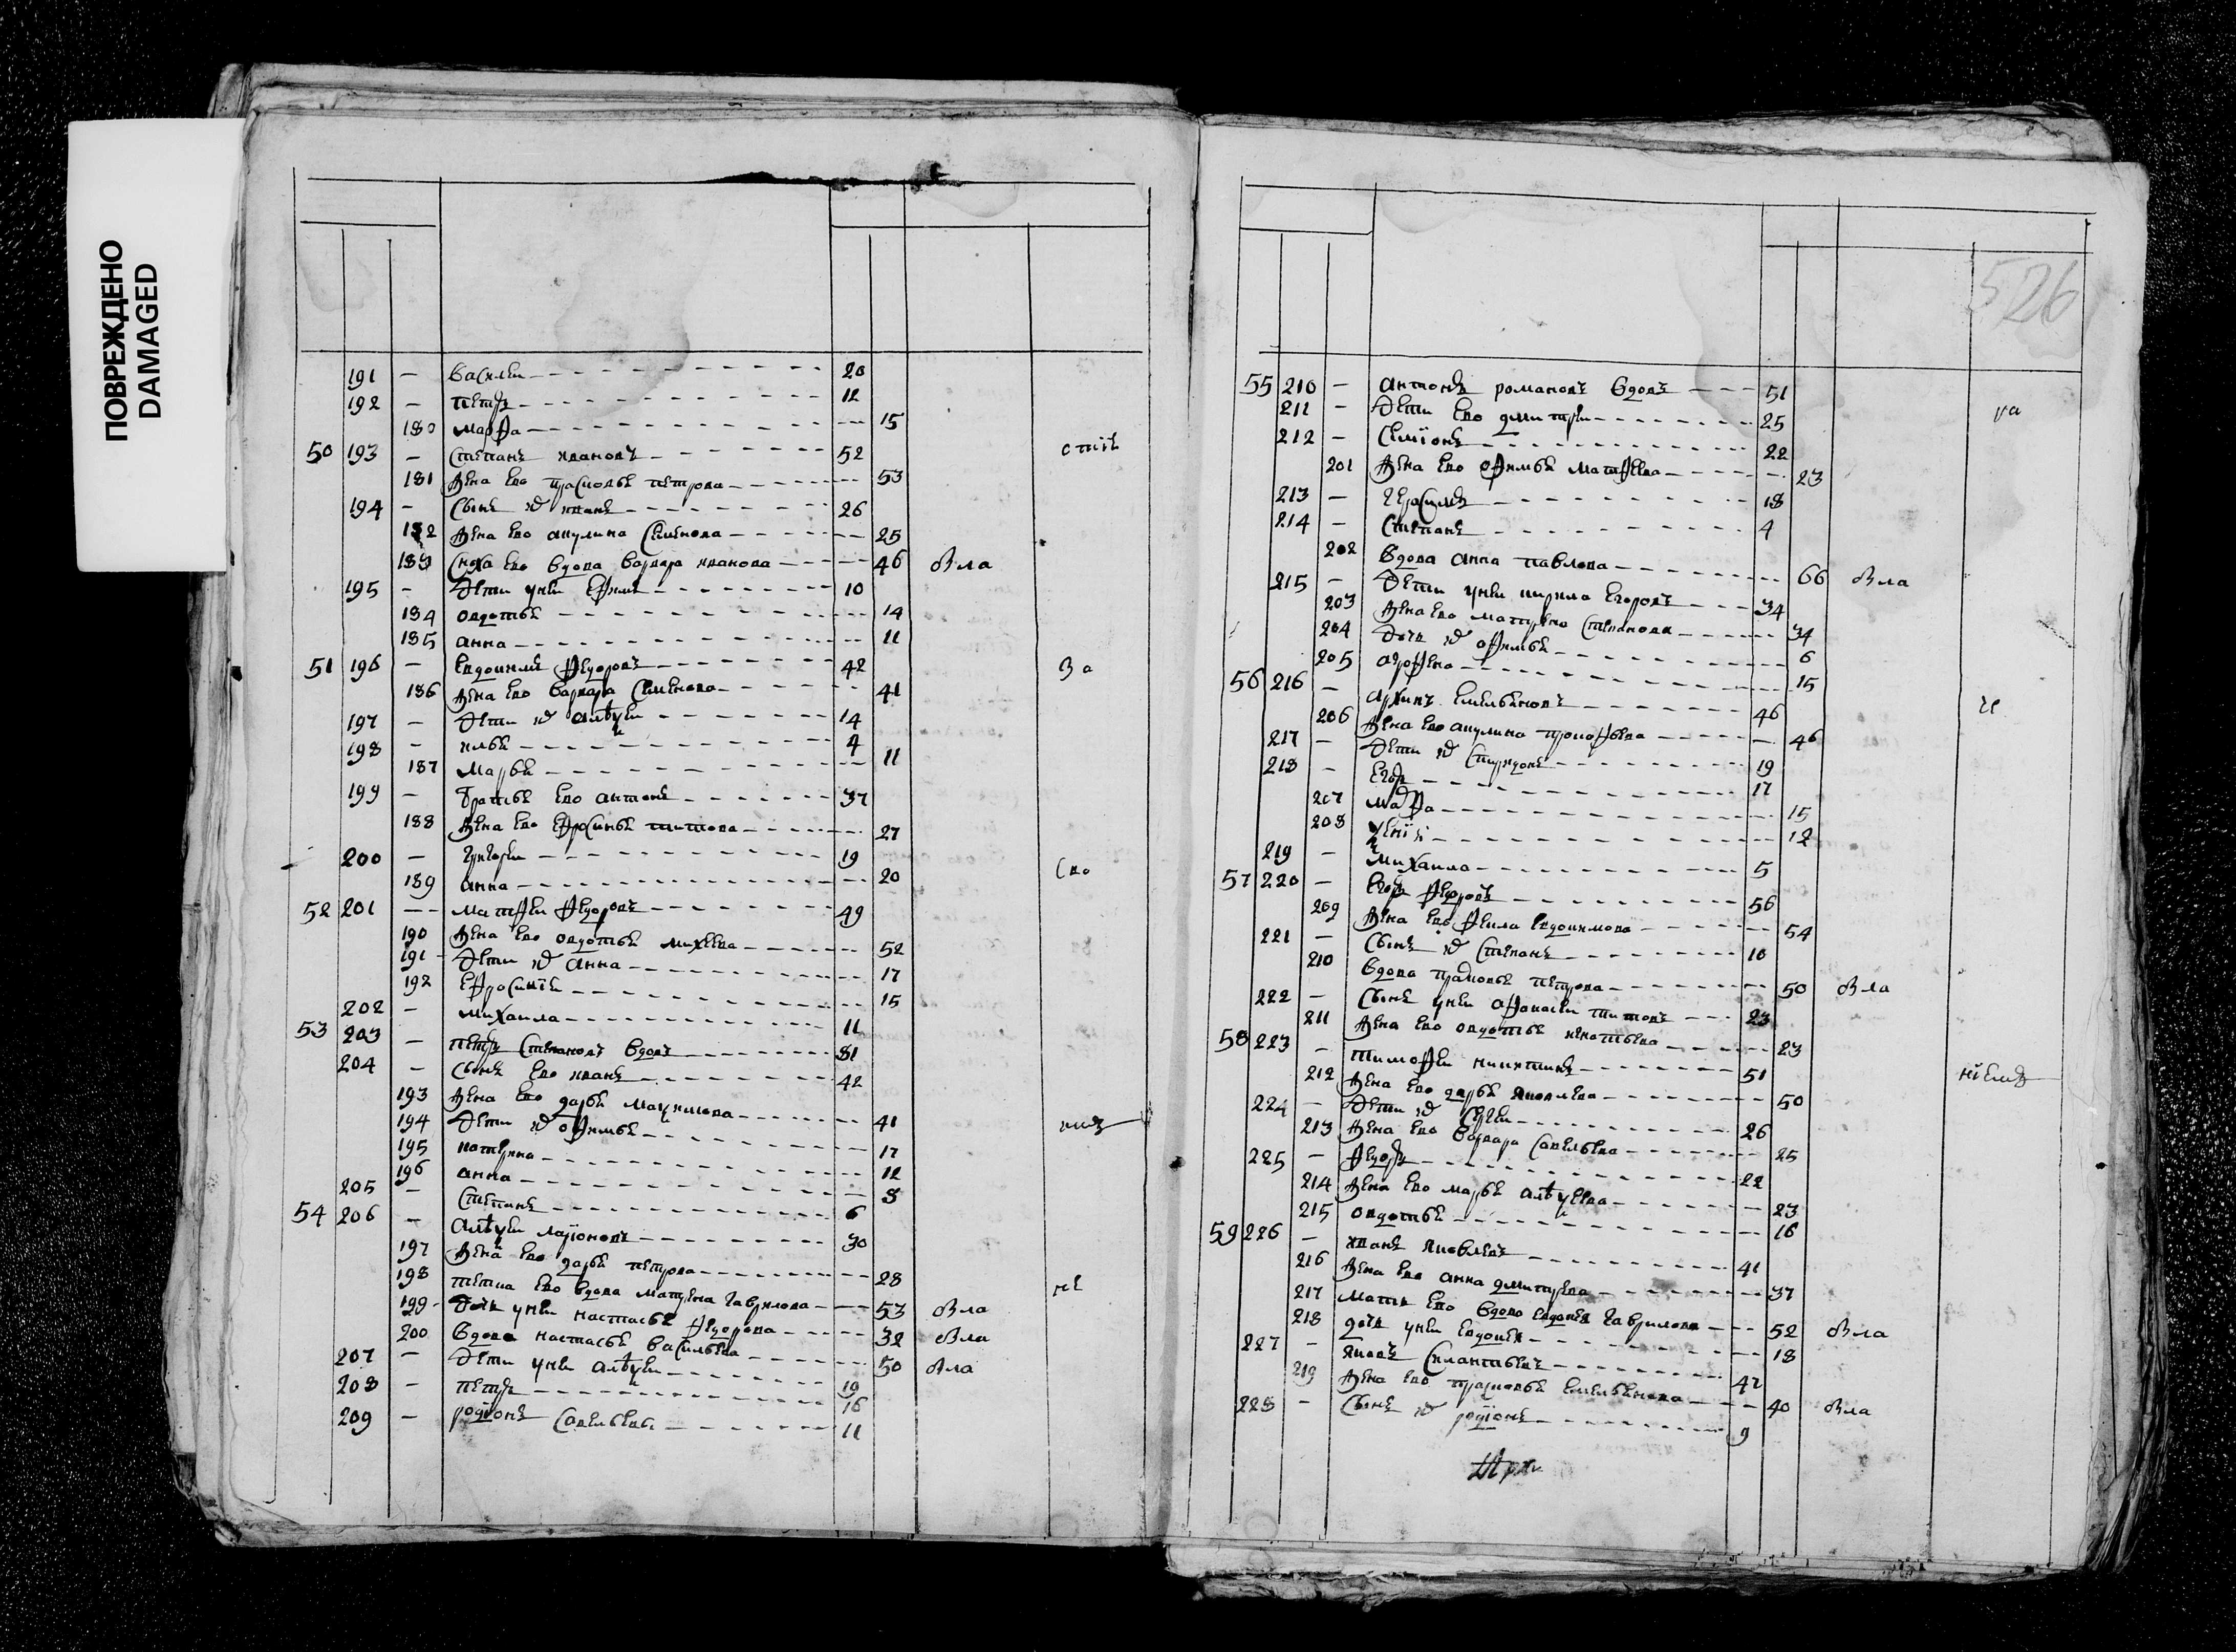 ПОВРЕЖДЕНО
DAMAGED
191 — василеи 20
192 — петръ 12
180 марфа 15
50 193 — степанъ ивановъ 52
181 жена ево прасковья петрова 53
194 — сынъ их иванъ 26
182 жена ево акулина семенова 25
183 сноха ево вдова варвара иванова 46 вла
195 — дети унеи ефимъ 10
184 овдотья 14
185 анна 11
51 196 — евдокимъ федоровъ 42 за
186 жена ево варвара семенова 41
197 — дети их алѣксеи 14
198 — илья 4
187 марья 11
199 — братья ево антонъ 37
188 жена ево ефросинья титова 27
200 — григореи 19
189 анна 20 сво
52 201 — матфеи федоровъ 49
190 жена ево овдотья михеева 52
191 дети их анна 17
192 ефросинiя 15
202 — михаила 11
53 203 — петръ степановъ вдовъ 81
204 — сынъ ево иванъ 42
193 жена ево дарья максимова 41
194 дети их офимья 17
195 катерина 12
196 анна 8
205 — степанъ 6
54 206 — алѣксеи ларiоновъ 30
197 жена ево дарья петрова 28
198 тетка ево вдова матрена гаврилова 53 вла
199 дочь унеи настасья федорова 32 вла
200 вдова настасья васильева 50 вла
207 — дети унеи алѣксеи 19
208 — петръ 16
209 — родiонъ савельевы 11
526
55 210 — антонъ романовъ вдовъ 51
211 — дети ево дмитреи 25
212 — семiонъ 22
201 жена ево офимья матфеева 23
213 — герасимъ 18
214 — степанъ 4
202 вдова анна павлова 66 вла
215 — дети унеи кирила егоровъ 34
203 жена ево матрена степанова 34
204 дочь их офимья 6
205 аграфена 15
56 216 — архипъ емельяновъ 46
206 жена ево акулина прокофьева 46
217 — дети их спиридонъ 19
218 — егоръ 17
207 марфа 15
208 ксенiя 12
219 — михаила 5
57 220 — егоръ федоровъ 56
209 жена ево фекла евдокимова 54
221 — сынъ их степанъ 10
210 вдова прасковья петрова 50 вла
222 — сынъ унеи афанасеи титовъ 23
211 жена ево овдотья игнатьева 23
58 223 — тимофеи никитинъ 51
212 жена ево дарья яковлева 50
224 — дети их сергеи 26
213 жена ево варвара савельева 25
225 — федоръ 22
214 жена ево марья алѣксеева 23
215 овдотья 16
59 226 — иванъ яковлевъ 41
216 жена ево анна дмитреева 37
217 мать ево вдова евдокея гаврилова 52 вла
218 дочь унеи евдокея 18
227 — яковъ силантьевъ 42
219 жена ево прасковья емельянова 40 вла
228 — сынъ их родiонъ 9